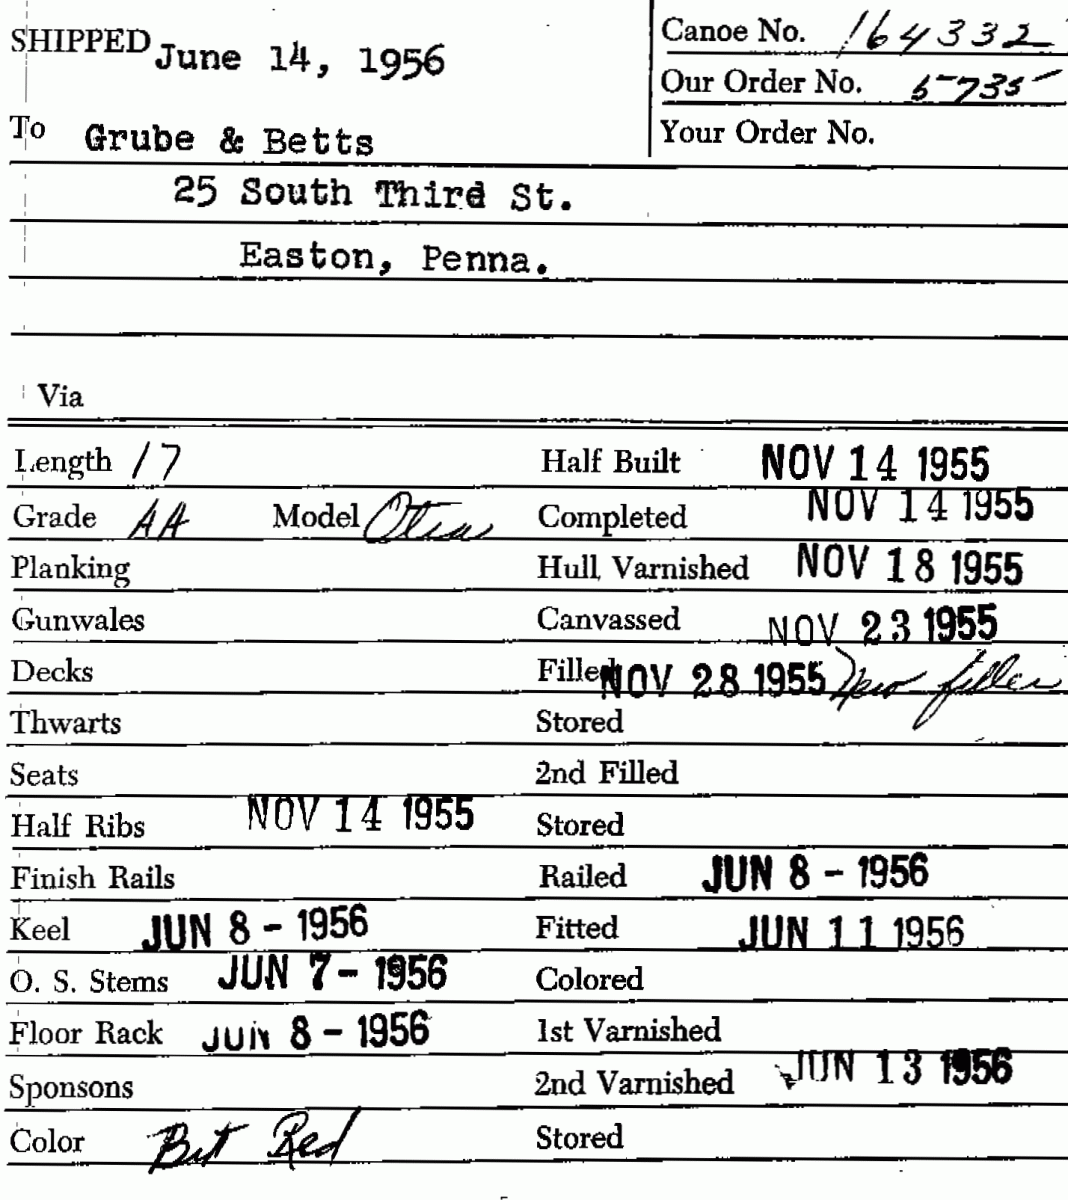 SHIPPED June 14, 1956
Canoe No. 164332
Our Order No. 5735
To Grube & Betts
Your Order No.
25 South Third St.
Easton, Penna.
Via
Length 17
Half Built NOV 14 1955
Grade AA Model
Completed NOV 14 1955
Planking
Hull Varnished NOV 18 1955
Gunwales
Canvassed NOV 23 1955
Decks
Filled NOV 28 1955 New filler
Thwarts
Stored
Seats
2nd Filled
Half Ribs NOV 14 1955
Stored
Finish Rails
Railed JUN 8 - 1956
Keel JUN 8 - 1956
Fitted JUN 11 1956
O. S. Stems JUN 7 - 1956
Colored
Floor Rack JUN 8 - 1956
1st Varnished
Sponsons
2nd Varnished JUN 13 1956
Color Brt Red
Stored